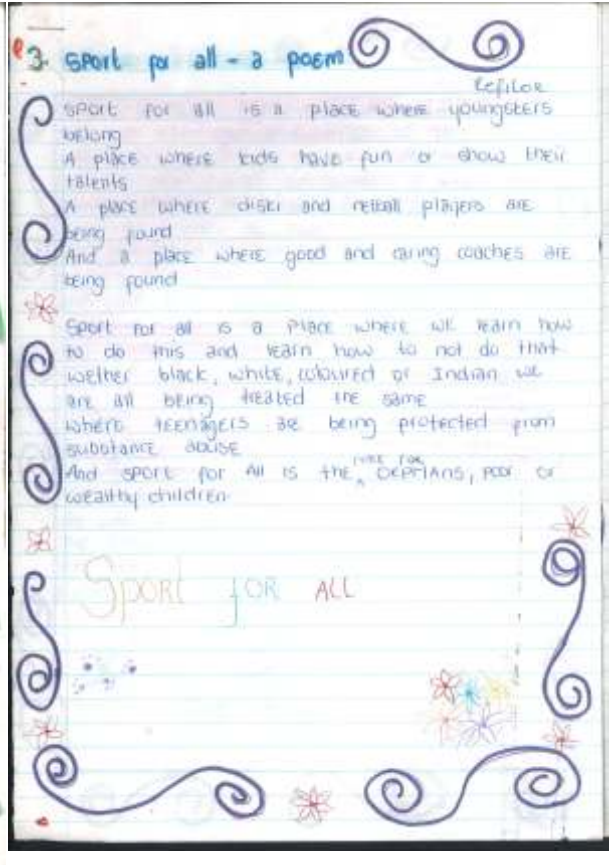 3. Sport for all - a poem
Refiloe
Sport for all is a place where youngsters
belong
A place where kids have fun or show their
talents
A place where diski and netball players are
being found
And a place where good and caring coaches are
being found
Sport for all is a place where we learn how
to do this and learn how to not do that
wether black, white, coloured or Indian we
are all being treated the same
where teenagers are being protected from
substance abuse
And sport for All is the, orphans, poor or
wealthy children
Sport for ALL